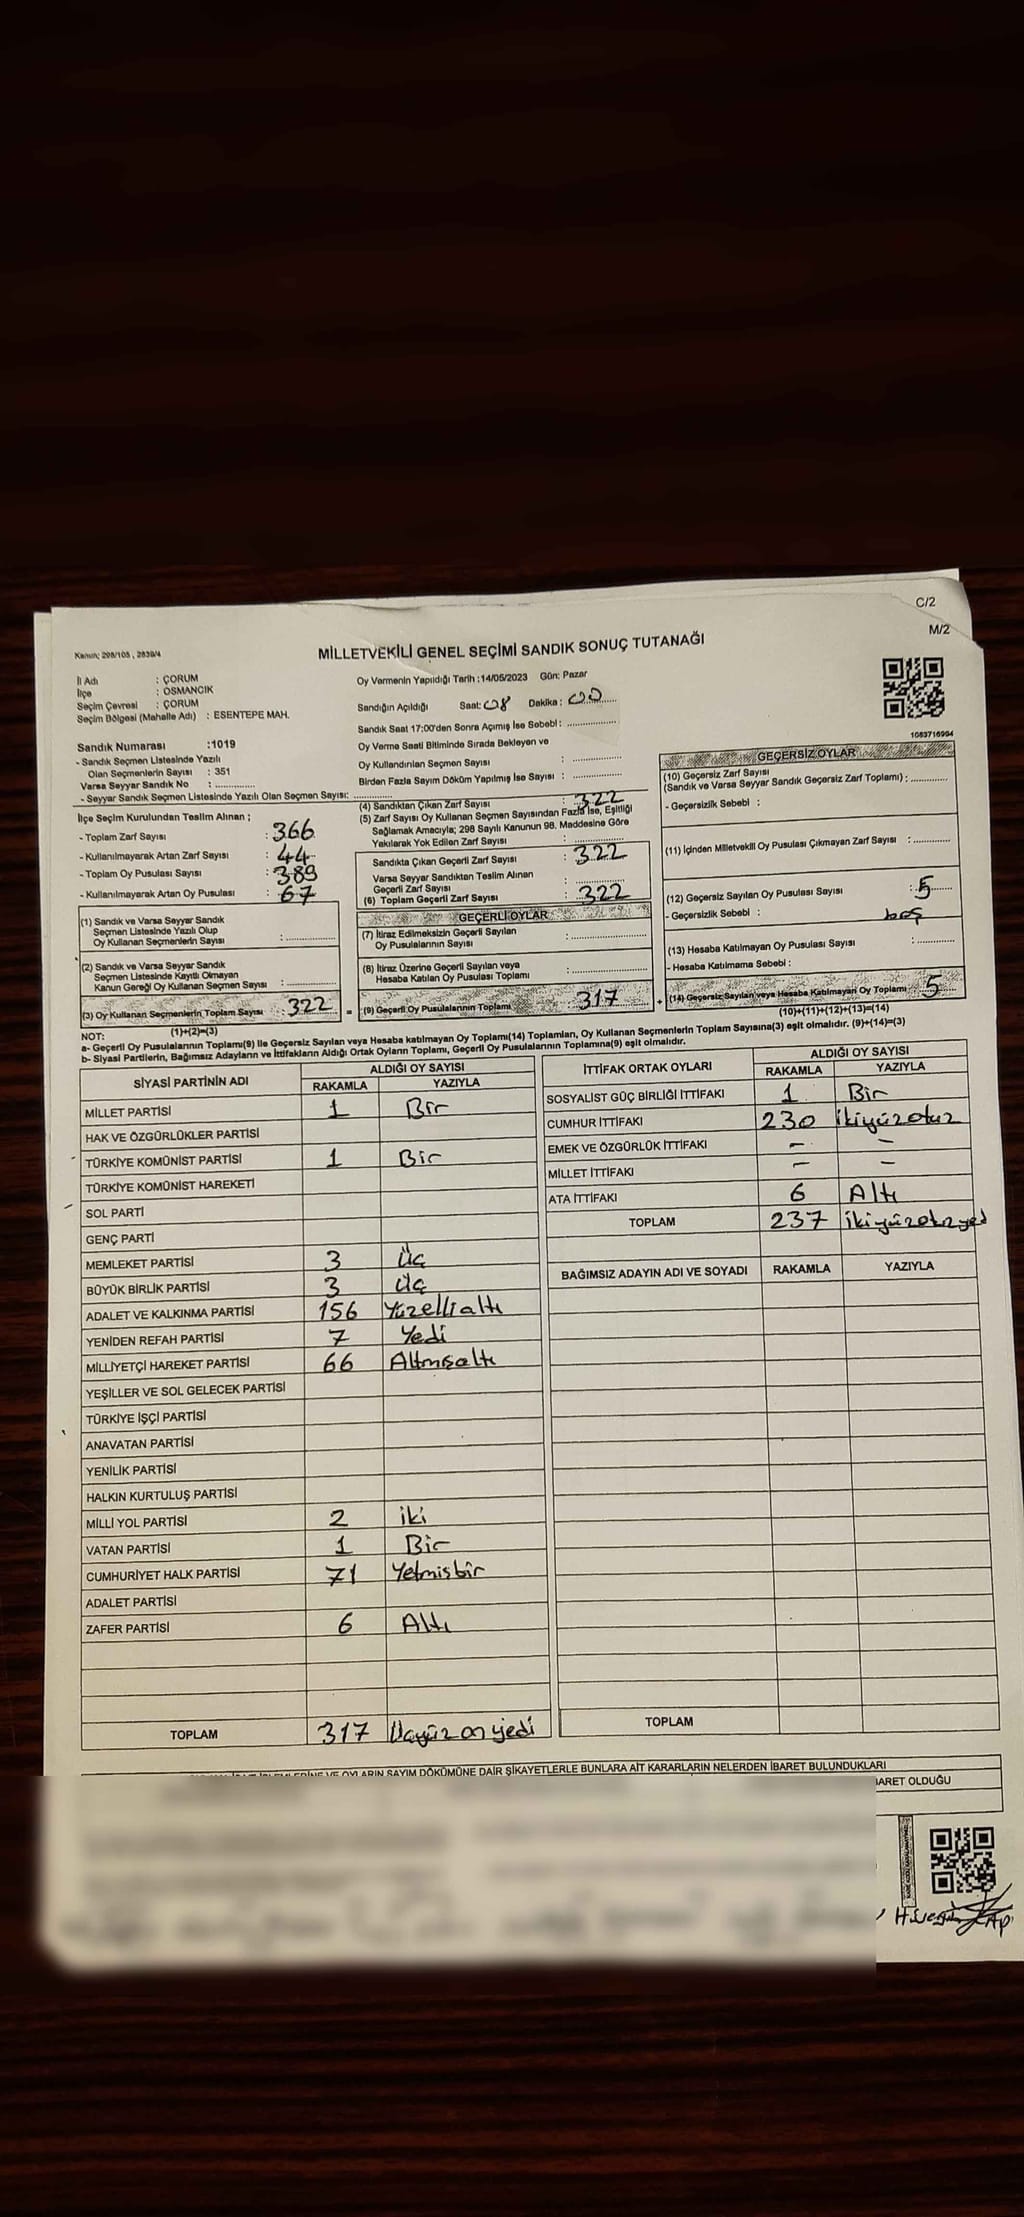 C/2
M/2
Kanun; 298/105 , 2839/4
MİLLETVEKİLİ GENEL SEÇİMİ SANDIK SONUÇ TUTANAĞI
İl Adı : ÇORUM
İlçe : OSMANCIK
Seçim Çevresi : ÇORUM
Seçim Bölgesi (Mahalle Adı) : ESENTEPE MAH.
Oy Vermenin Yapıldığı Tarih :14/05/2023 Gün: Pazar
Sandığın Açıldığı Saat: 08 Dakika : 00
Sandık Saat 17:00'den Sonra Açımış İse Sebebi:
Oy Verme Saati Bitiminde Sırada Bekleyen ve
Oy Kullandırılan Seçmen Sayısı :
Birden Fazla Sayım Döküm Yapılmış İse Sayısı :
1083716994
Sandık Numarası :1019
- Sandık Seçmen Listesinde Yazılı
Olan Seçmenlerin Sayısı : 351
Varsa Seyyar Sandık No :
- Seyyar Sandık Seçmen Listesinde Yazılı Olan Seçmen Sayısı:
İlçe Seçim Kurulundan Teslim Alınan ;
- Toplam Zarf Sayısı : 366
- Kullanılmayarak Artan Zarf Sayısı : 44
- Toplam Oy Pusulası Sayısı : 389
- Kullanılmayarak Artan Oy Pusulası : 67
(1) Sandık ve Varsa Seyyar Sandık
Seçmen Listesinde Yazılı Olup
Oy Kullanan Seçmenlerin Sayısı :
(2) Sandık ve Varsa Seyyar Sandık
Seçmen Listesinde Kayıtlı Olmayan
Kanun Gereği Oy Kullanan Seçmen Sayısı :
(3) Oy Kullanan Seçmenlerin Toplam Sayısı : 322
(1)+(2)=(3)
(4) Sandıktan Çıkan Zarf Sayısı : 322
(5) Zarf Sayısı Oy Kullanan Seçmen Sayısından Fazla İse, Eşitliği
Sağlamak Amacıyla; 298 Sayılı Kanunun 98. Maddesine Göre
Yakılarak Yok Edilen Zarf Sayısı :
Sandıkta Çıkan Geçerli Zarf Sayısı : 322
Varsa Seyyar Sandıktan Teslim Alınan
Geçerli Zarf Sayısı :
(6) Toplam Geçerli Zarf Sayısı : 322
GEÇERLİ OYLAR
(7) İtiraz Edilmeksizin Geçerli Sayılan
Oy Pusulalarının Sayısı :
(8) İtiraz Üzerine Geçerli Sayılan veya
Hesaba Katılan Oy Pusulası Toplamı :
= (9) Geçerli Oy Pusulalarının Toplamı 317
GEÇERSİZ OYLAR
(10) Geçersiz Zarf Sayısı
(Sandık ve Varsa Seyyar Sandık Geçersiz Zarf Toplamı) :
- Geçersizlik Sebebi :
(11) İçinden Milletvekili Oy Pusulası Çıkmayan Zarf Sayısı :
(12) Geçersiz Sayılan Oy Pusulası Sayısı : 5
- Geçersizlik Sebebi : beş
(13) Hesaba Katılmayan Oy Pusulası Sayısı :
- Hesaba Katılmama Sebebi :
+ (14) Geçersiz Sayılan veya Hesaba Katılmayan Oy Toplamı 5
(10)+(11)+(12)+(13)=(14)
NOT:
a- Geçerli Oy Pusulalarının Toplamı(9) ile Geçersiz Sayılan veya Hesaba katılmayan Oy Toplamı(14) Toplamları, Oy Kullanan Seçmenlerin Toplam Sayısına(3) eşit olmalıdır. (9)+(14)=(3)
b- Siyasi Partilerin, Bağımsız Adayların ve İttifakların Aldığı Ortak Oyların Toplamı, Geçerli Oy Pusulalarının Toplamına(9) eşit olmalıdır.
SİYASİ PARTİNİN ADI ALDIĞI OY SAYISI
RAKAMLA YAZIYLA
MİLLET PARTİSİ 1 Bir
HAK VE ÖZGÜRLÜKLER PARTİSİ
TÜRKİYE KOMÜNİST PARTİSİ 1 Bir
TÜRKİYE KOMÜNİST HAREKETİ
SOL PARTİ
GENÇ PARTİ
MEMLEKET PARTİSİ 3 Üç
BÜYÜK BİRLİK PARTİSİ 3 Üç
ADALET VE KALKINMA PARTİSİ 156 Yüzellialtı
YENİDEN REFAH PARTİSİ 7 Yedi
MİLLİYETÇİ HAREKET PARTİSİ 66 Altmışaltı
YEŞİLLER VE SOL GELECEK PARTİSİ
TÜRKİYE İŞÇİ PARTİSİ
ANAVATAN PARTİSİ
YENİLİK PARTİSİ
HALKIN KURTULUŞ PARTİSİ
MİLLİ YOL PARTİSİ 2 iki
VATAN PARTİSİ 1 Bir
CUMHURİYET HALK PARTİSİ 71 Yetmisbir
ADALET PARTİSİ
ZAFER PARTİSİ 6 Altı
TOPLAM 317 Üçyüz on yedi
İTTİFAK ORTAK OYLARI ALDIĞI OY SAYISI
RAKAMLA YAZIYLA
SOSYALİST GÜÇ BİRLİĞİ İTTİFAKI 1 Bir
CUMHUR İTTİFAKI 230 ikiyüzotuz
EMEK VE ÖZGÜRLÜK İTTİFAKI - -
MİLLET İTTİFAKI - -
ATA İTTİFAKI 6 Altı
TOPLAM 237
BAĞIMSIZ ADAYIN ADI VE SOYADI RAKAMLA YAZIYLA
TOPLAM
VE OYLARIN SAYIM DÖKÜMÜNE DAİR ŞİKAYETLERLE BUNLARA AİT KARARLARIN NELERDEN İBARET BULUNDUKLARI
OLDUĞU